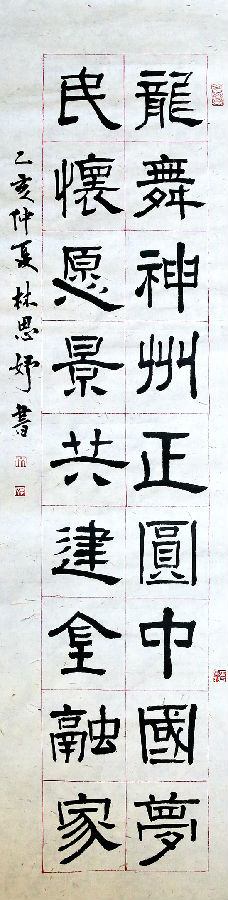 龍舞神州正圓中國夢
民懷愿景共建金融家
乙亥仲夏林思妤書